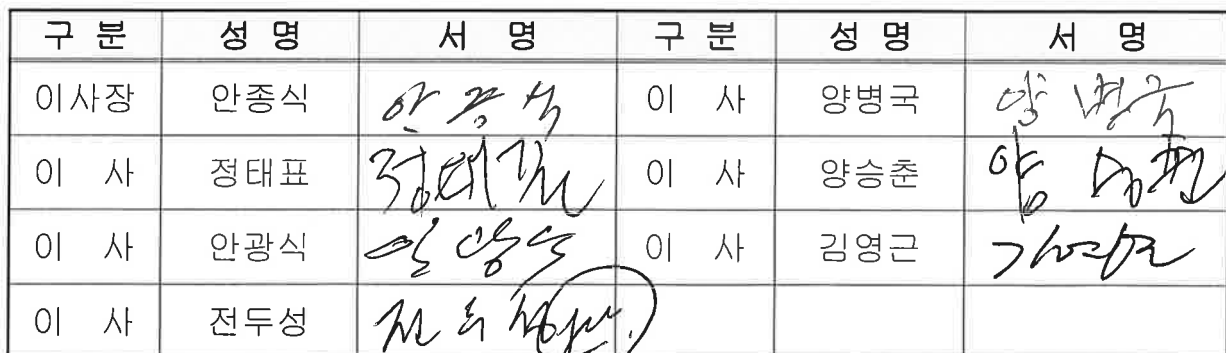 구 분 성 명 서 명 구 분 성 명 서 명
이사장 안종식 안종식 이 사 양병국 양병국
이 사 정태표 정태표 이 사 양승춘
이 사 안광식 안광식 이 사 김영근 김영근
이 사 전두성 전두성